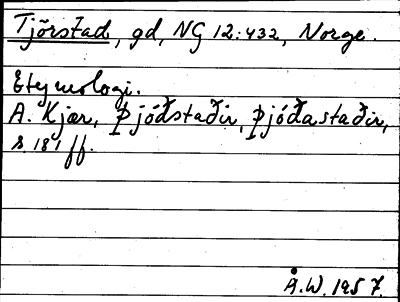 Tjörstad, gd, NG 12:432, Norge.
Etymologi.
A. Kjær, Þjóðstaðir, Þjóðastaðir,
s. 181 ff.
Å.W. 1957.